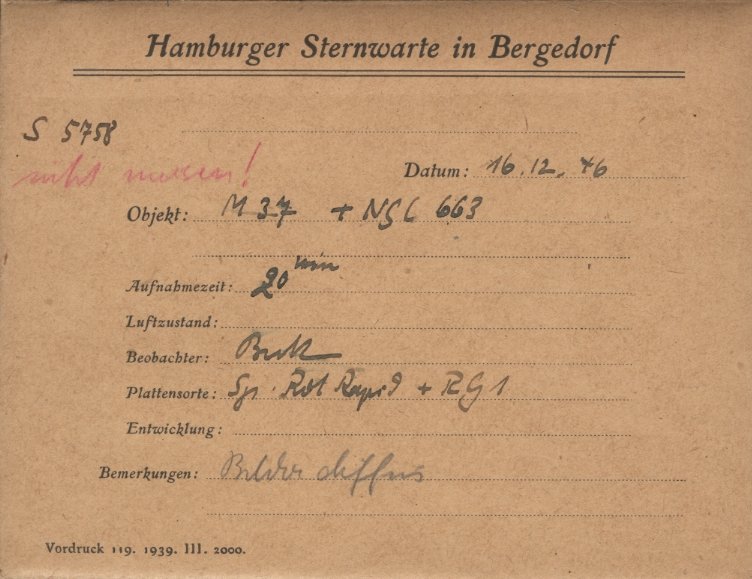 Hamburger Sternwarte in Bergedorf
S 5758
nicht messen!
Datum: 16.12.46
Objekt: M 37 + NGC 663
Aufnahmezeit: 20 min
Luftzustand:
Beobachter:
Plattensorte: Rot Rapid + RG1
Entwicklung:
Bemerkungen: Bilder diffus
Vordruck 119. 1939. III. 2000.